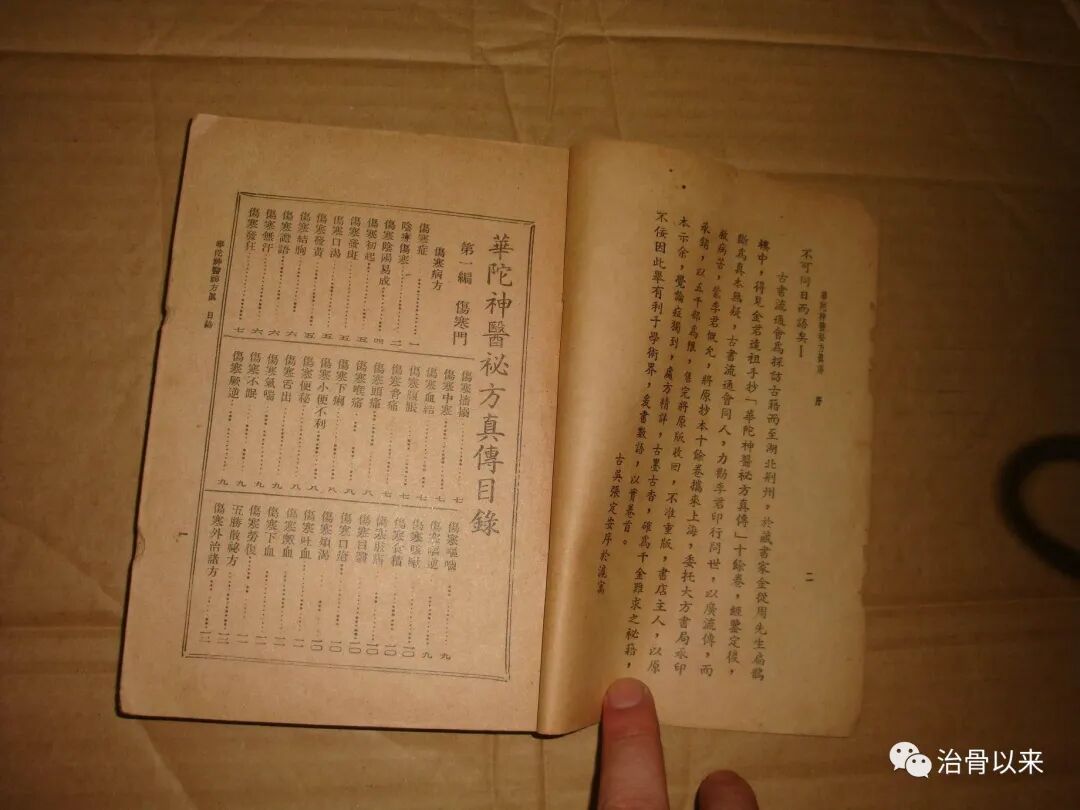 華陀神醫祕方真傳 序 二
不可同日而語矣！
古書流通會為採訪古籍而至湖北荆州，於藏書家金從周先生扁鵲
樓中，得見金君遠祖手抄「華陀神醫祕方真傳」十餘卷，經鑒定後，
斷為真本無疑，古書流通會同人，力勸李君印行問世，以廣流傳，而
救病苦，蒙李君慨允，將原抄本十餘卷攜來上海，委托大方書局承印
發銷，以五千部為限，售完將原版收回，不准重版，書店主人，以原
本示余，覺論症獨到，處方精詳，古墨古香，確為千金難求之祕籍，
不佞因此舉有利于學術界，爰書數語，以實卷首。
古吳張定安序於滬寓
華陀神醫祕方真傳目錄
第一編 傷寒門
傷寒病方
傷寒症 一
陰療傷寒 二
傷寒陰陽易成 二
傷寒初起 四
傷寒發斑 五
傷寒口渴 五
傷寒發黃 五
傷寒結胸 五
傷寒譫語 六
傷寒無汗 六
傷寒發狂 七
傷寒搐搦 七
傷寒中寒 七
傷寒血結 七
傷寒腹脹 七
傷寒脊痛 七
傷寒頭痛 八
傷寒喉痛 八
傷寒下痢 八
傷寒小便不利 八
傷寒便秘 八
傷寒舌出 九
傷寒氣喘 九
傷寒不眠 九
傷寒厥逆 九
傷寒嘔喘 九
傷寒嘔逆 九
傷寒咳嗽 一〇
傷寒食積 一〇
傷寒肢痛 一〇
傷寒目翳 一〇
傷寒口瘡 一〇
傷寒煩渴 一〇
傷寒吐血 一一
傷寒衄血 一一
傷寒下血 一一
傷寒勞復 一一
五勝散祕方 一一
傷寒外治諸方 一二
華陀神醫祕方真 目錄
一
治骨以来